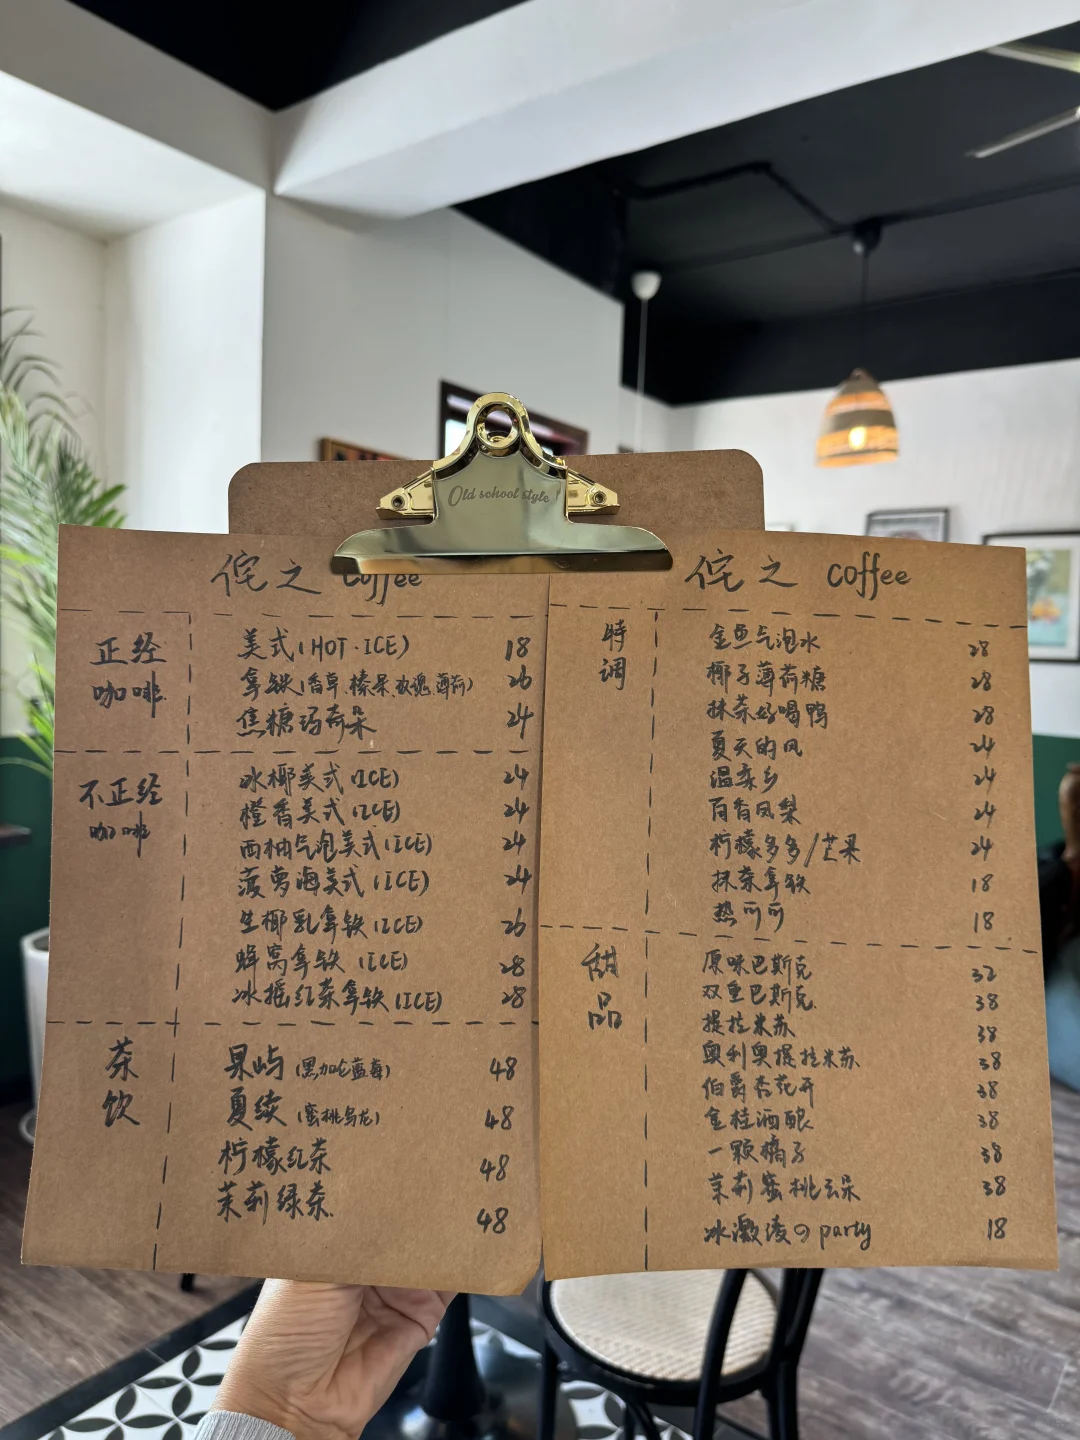 Old school style
侘之 coffee
正经
咖啡
美式(HOT·ICE) 18
拿铁(香草.榛果.玫瑰.薄荷) 26
焦糖玛奇朵 24
不正经
咖啡
冰椰美式(ICE) 24
橙香美式(ICE) 24
西柚气泡美式(ICE) 24
菠萝海美式(ICE) 24
生椰乳拿铁(ICE) 26
蜂窝拿铁 (ICE) 28
冰摇红茶拿铁(ICE) 28
茶
饮
果屿(黑加仑蓝莓) 48
夏续(蜜桃乌龙) 48
柠檬红茶 48
茉莉绿茶. 48
侘之 coffee
特
调
金鱼气泡水 28
椰子薄荷糖 28
抹茶好喝鸭 28
夏天的风 24
温柔乡 24
百香凤梨 24
柠檬多多/芒果 24
抹茶拿铁 18
热可可 18
甜
品
原味巴斯克 32
双重巴斯克. 38
提拉米苏 38
奥利奥提拉米苏 38
伯爵杏花开 38
金桂酒酿 38
一颗橘子 38
茉莉蜜桃云朵 38
冰激凌の party 18